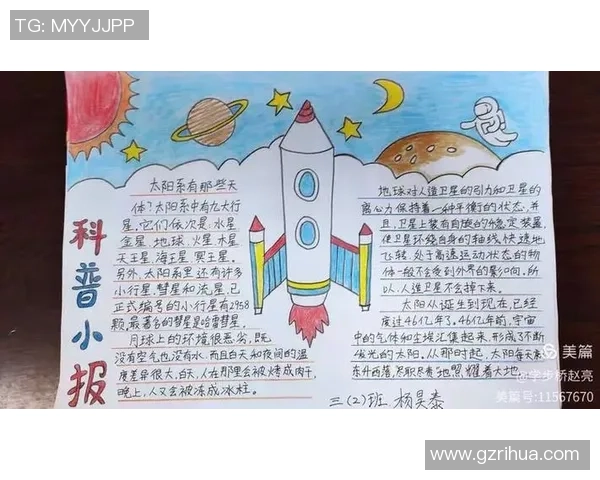 TG: MYYJJPP
科普小报
太阳系有哪些天
体?太阳系中有九大行
星,它们依次是:水星
金星、地球、火星、木星
天王星、海王星、冥王星。
另外,太阳系里还有许多
小行星、彗星和流星,已
正式编号的小行星有2958
颗,最著名的彗星是哈雷彗星。
月球上的环境很恶劣,既
没有空气也没有水。而且白天和夜间的温
度差异很大,白天,人在那里会被烤成肉干,
晚上,人又会被冻成冰柱。
地球对人造卫星的引力和卫星的
离心力保持着一种平衡的状态,并
且,卫星上装有自旋的稳定装置,
使卫星环绕自身的轴线快速地
飞转,处于高速运动状态的物
体一般不会受到外界的影响,所
以,人造卫星不会掉下来。
太阳从诞生到现在,已经
度过46亿年了。46亿年前,宇宙
中的气体和尘埃汇集起来,形成了不断
发光的太阳,从那时起,太阳每天东
东升西落,尽职尽责地照耀着大地。
三(2)班 杨昊泰
美篇
@学步桥赵亮
美篇号:11567670
www.gzrihua.com